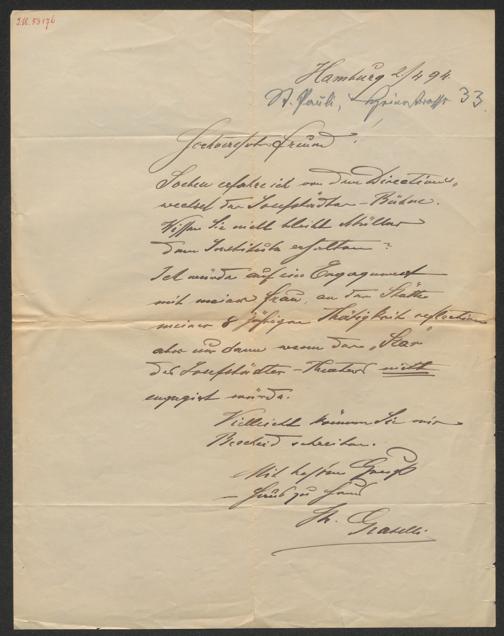 I.N. 53176
Hamburg 2/4 94.
St. Pauli, 33.
Hochverehrter Freund!
Soeben erfahre ich von dem Directions-
wechsel der Josefstädter-Bühne.
Wissen Sie nicht bleibt Müller
dem Institute erhalten?
Ich würde auf ein Engagement
mit meiner Frau, an der Stätte
meiner 8 jährigen Thätigkeit reflectiren
aber nur dann wenn der „Star"
des Josefstädter-Theaters nicht
engagirt würde.
Vielleicht können Sie mir
Bescheid schreiben.
Mit besten Gruß
von Haus zu Haus
Th.